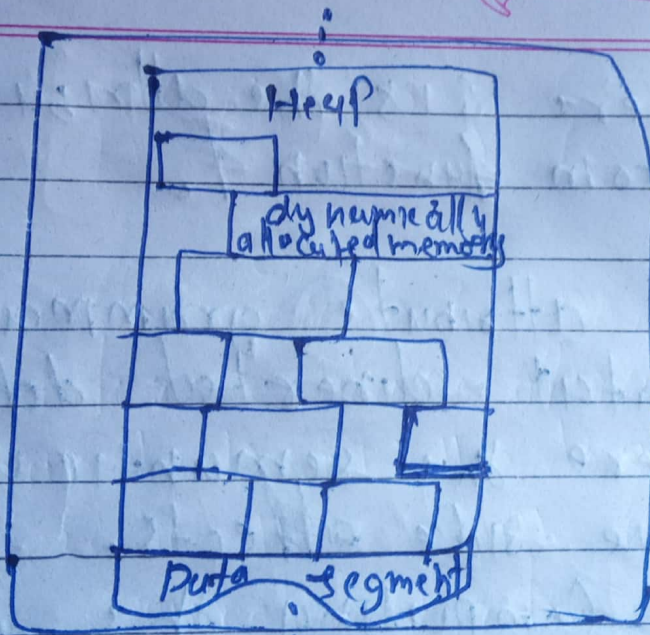 Heap
dynamically
allocated memory
Data segment